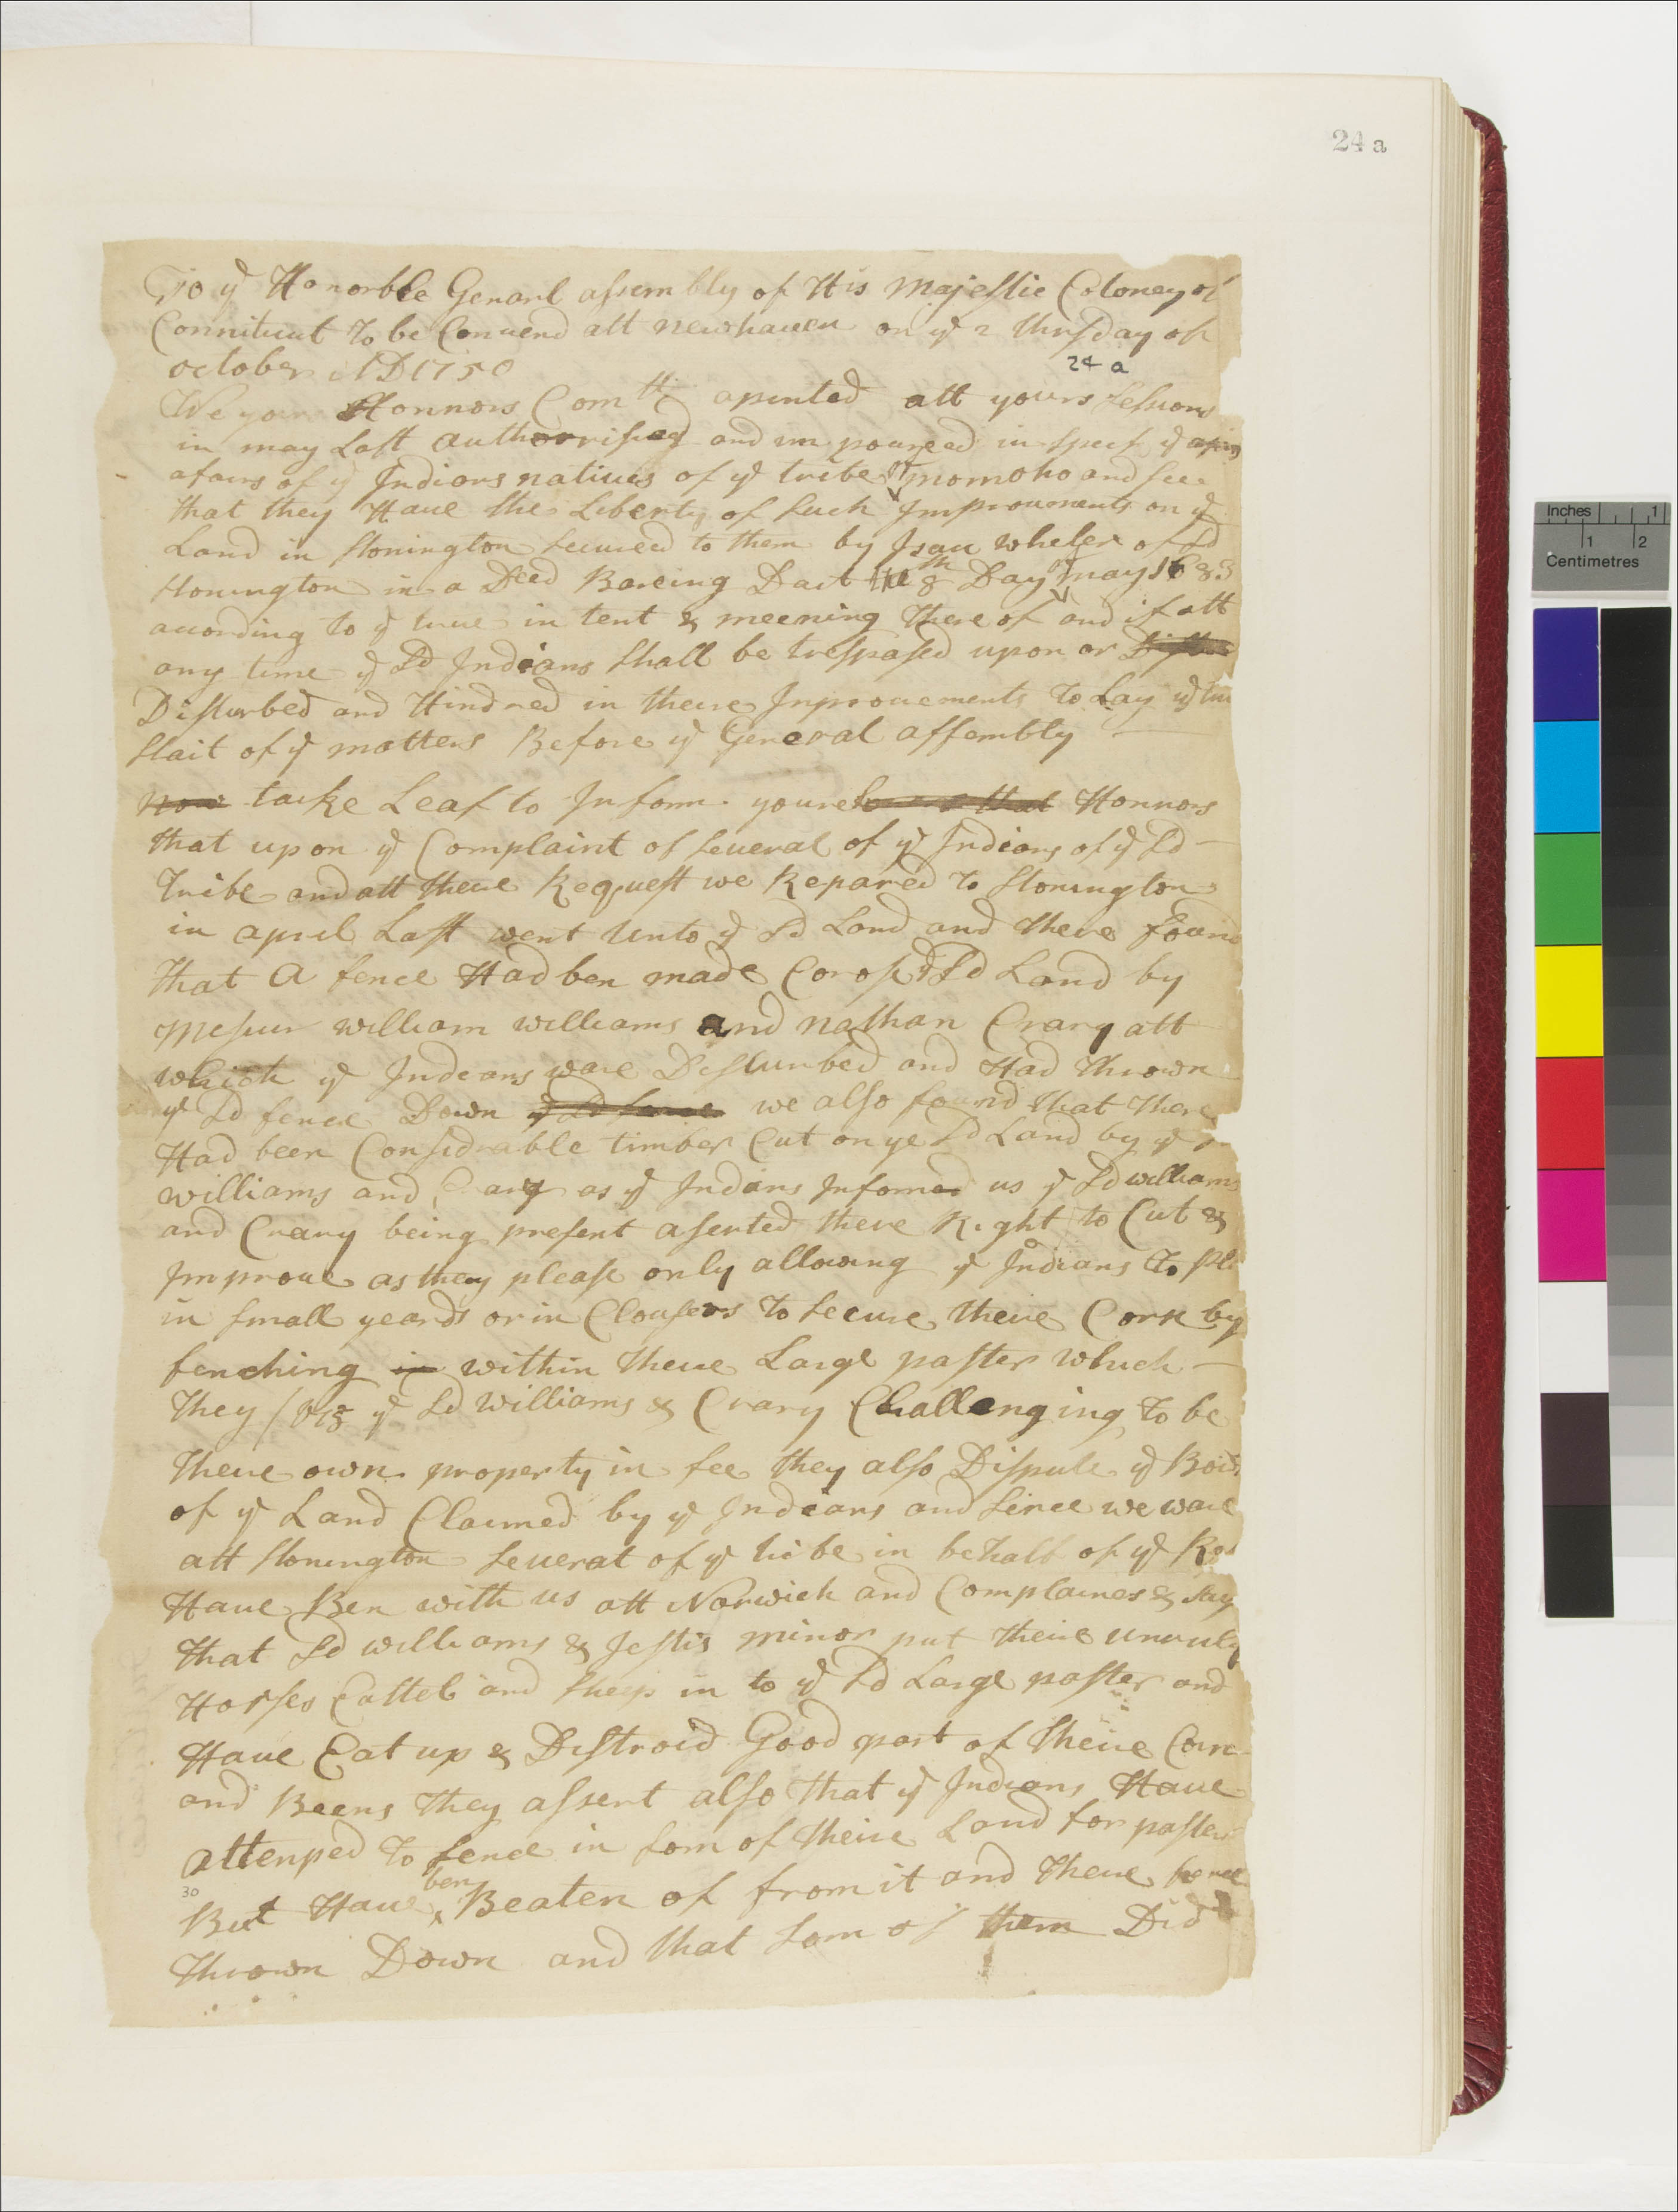 24 a
To ye Honorble Genarl assembly of His Majestie Coloney of
Conniticut To be Conuend att newhauen on ye 2 thirsday of
october AD 1750
24 a
We your Honnors Comtte apinted att yours Sessions
in may Last authorrised and im poureed in spect ye
afairs of ye Indians natiues of ye tribe of momoho and see
that they Haue the Liberty of Such Improuments on ye
Land in Stonington Secured to them by Isau wheler of Sd
Stonington in a Deed Bareing Dait the 8th Day of may 1683
acording to ye true in tent & meening there of and if att
any time ye Sd Indians Shall be trespased upon or
Disturbed and Hindred in theire Inprouements To Lay ye tru
Stait of ye matters Before ye General assembly
now take Leaf to Inform youre Honnors
that upon ye Complaint of Seueral of ye Indians of ye Sd
Tribe and att theire Request we Repared to Stonington
in april Last went unto ye Sd Land and there found
that a fence Had ben made Coross ye Sd Land by
Messurs william williams and nathan Crary att
which ye Indeans ware Desturbed and Had thrown
ye Sd fence Down ye Sd fence we also found that there
Had been Considrable timber Cut on ye Sd Land by ye
williams and Crary as ye Indians Infomed us ye Sd williams
and Crary being present aserted there Right to Cut &
Improue as they please only allowing ye Indians To
in small yeards or in Clousers To Secure theire Corn by
fenching in within there Large paster which
They (viz ye Sd williams & Crary Challenging To be
there own property in fee they also Dispute ye
of ye Land Claimed by ye Indeans and Since we ware
att Stonington Seueral of ye tribe in behalf of ye
Haue Ben with us att Norwich and Complaines & Say
that Sd williams & Jestis minor put theire unruly
Horses Cattel and Sheep in to ye Sd Large paster and
Haue Eat up & Distroid Good part of theire Corn
and Beens They assert also that ye Indians Haue
attenped To fence in som of theire Land for paster
30
But Haue ben Beaten of from it and there fence
thrown Down and that Som of them Did